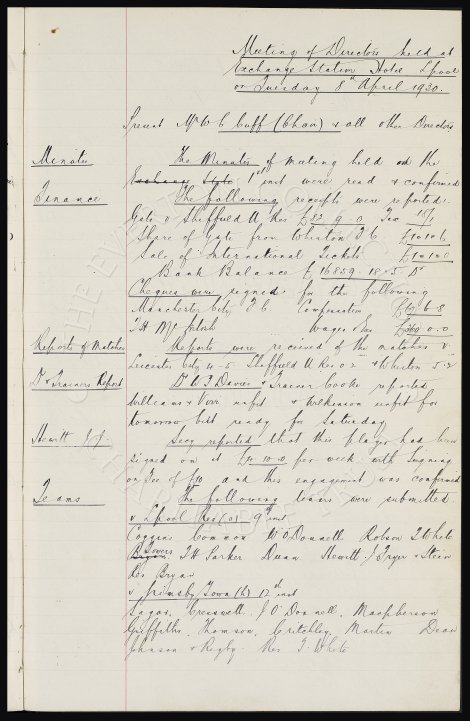 Meeting of Directors held at
Exchange Station Hotel Lpool
on Tuesday 8th April 1930.
Present Mr W C Cuff (Chair) & all other Directors
Minutes
The Minutes of meeting held on the
Exchange 1st inst were read & confirmed
Finance
The following receipts were reported.
Gate v Sheffield U Res £82. 9. 0
Share of Gate from Wheaton F C £10.10.6
Sale of International Tickets
Bank Balance £16859. 18. 5
Cheques were signed for the following
Manchester City F C Compensation
T H McIntosh Wages &c £360.0.0
Reports of Matches
Reports were received of the matches v
Leicester City 4-5 Sheffield U Res 0-2 & Wheaton 5-2
Dr & Trainers Report
Dr W J Davies & Trainer Cooke reported
Williams & Kerr unfit & Wilkinson unfit for
tomorrow but ready for Saturday
Hewitt J J.
Secy reported that this player had been
signed on at £4.10.0 per week with Signing
on Fee of £10 and this engagement was confirmed
Teams
The following teams were submitted.
v Lpool Res (a) 9th inst
Coggins Common W O'Donnell Robson T White
Towers T H Parker Dunn Hewitt J Fryer & Stein
Res Bryan
v Grimsby Town (h) 12th inst
Sagar, Cresswell, J O'Donnell, Macpherson
Griffiths, Thomson, Critchley, Martin Dean
Johnson & Rigby. Res T White